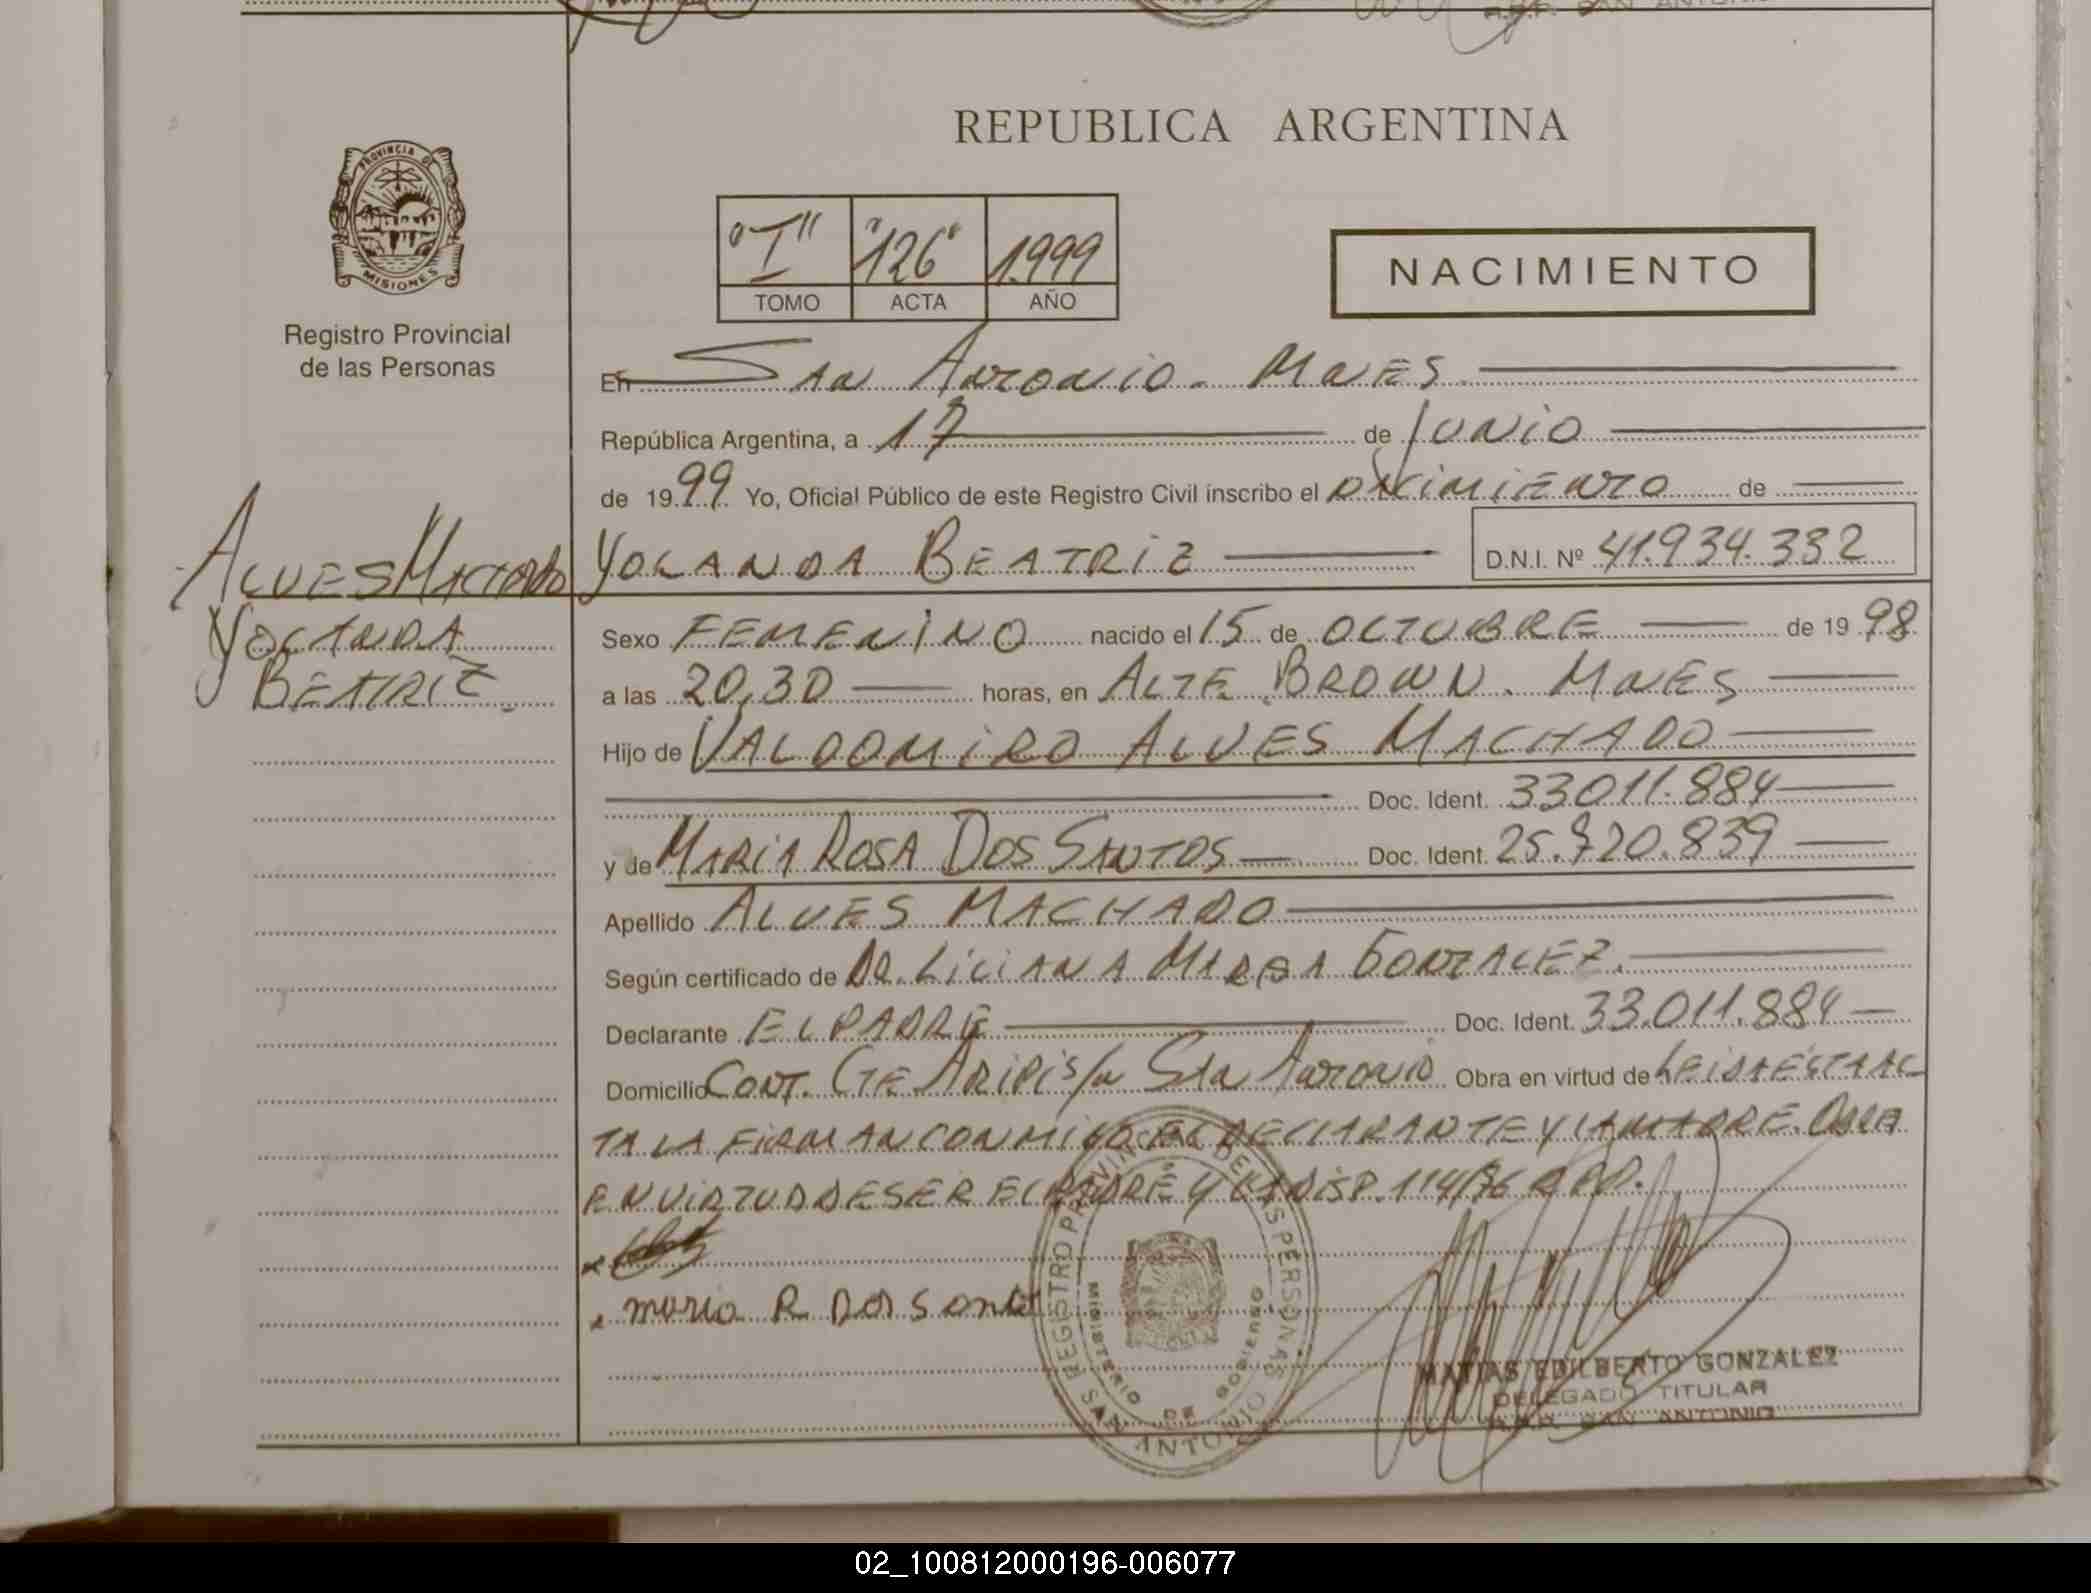 REPUBLICA ARGENTINA
PROVINCIA DE
MISIONES
Registro Provincial
de las Personas
"I" "126" 1.999
TOMO ACTA AÑO
NACIMIENTO
En San Antonio. Mnes.
República Argentina, a 17 de Junio
de 1999 Yo, Oficial Público de este Registro Civil inscribo el nacimiento de
Yolanda Beatriz D.N.I. Nº 41.934.332
Alves Machado
Yolanda
Beatriz
Sexo Femenino nacido el 15 de Octubre de 1998
a las 20,30 horas, en Alte Brown. Mnes
Hijo de Valdomiro Alves Machado
Doc. Ident. 33.011.884
y de Maria Rosa Dos Santos Doc. Ident. 25.720.839
Apellido Alves Machado
Según certificado de Dr. Liliana Marga Gonzalez.
Declarante El Padre Doc. Ident. 33.011.884
Domicilio Cont. Cte s/n San Antonio Obra en virtud de Leida esta ac
ta la firman conmigo el declarante y la madre. Obra
en virtud de ser el padre y la Disp. 114/96 RPP.
maria R Dos Santos
REGISTRO PROVINCIAL DE LAS PERSONAS
MINISTERIO DE GOBIERNO
SAN ANTONIO
MATIAS EDILBERTO GONZALEZ
DELEGADO TITULAR
SAN ANTONIO
02_100812000196-006077